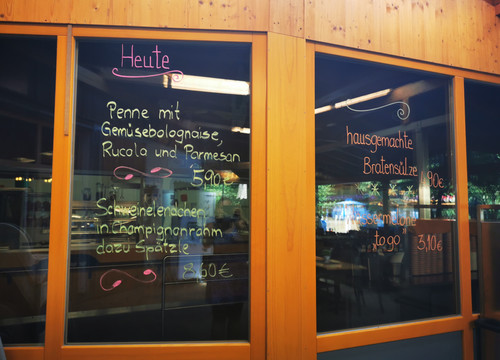 Heute
Penne mit
Gemüsebolognaise,
Rucola und Parmesan
5,90€
Schweinelendchen
in Champignonrahm
dazu Spätzle
8,60€
hausgemachte
Bratensülze
90€
to go 3,10€